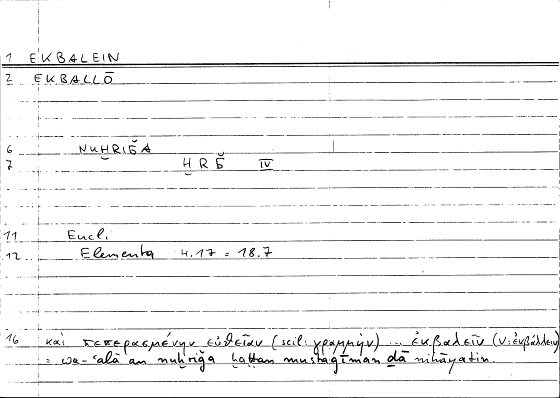 1 EKBALEIN
2 EKBALLŌ
6 NUḪRIǦA
7 ḪRǦ IV
11 Eucl.
12 Elementa 4.17 = 18.7
16 καὶ πεπερασμένην εὐθεῖαν (scil. γραμμήν) ... ἐκβαλεῖν (v: ἐκβάλλειν)
= wa-ʿalā an nuḫriǧa ḫaṭṭan mustaqīman ḏā nihāyatin.